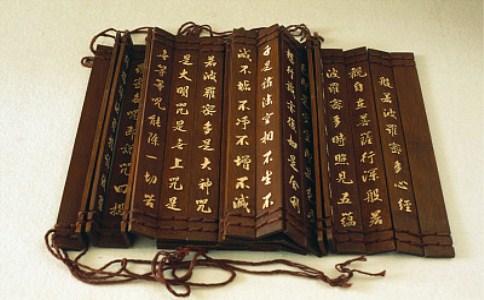 般若波羅蜜多心經
觀自在菩薩行深般若
波羅蜜多時照見五蘊
想行識亦復如是舍利
子是諸法空相不生不
滅不垢不淨不增不減
若波羅蜜多是大神咒
是大明咒是無上咒是
無等等咒能除一切苦
說咒曰揭